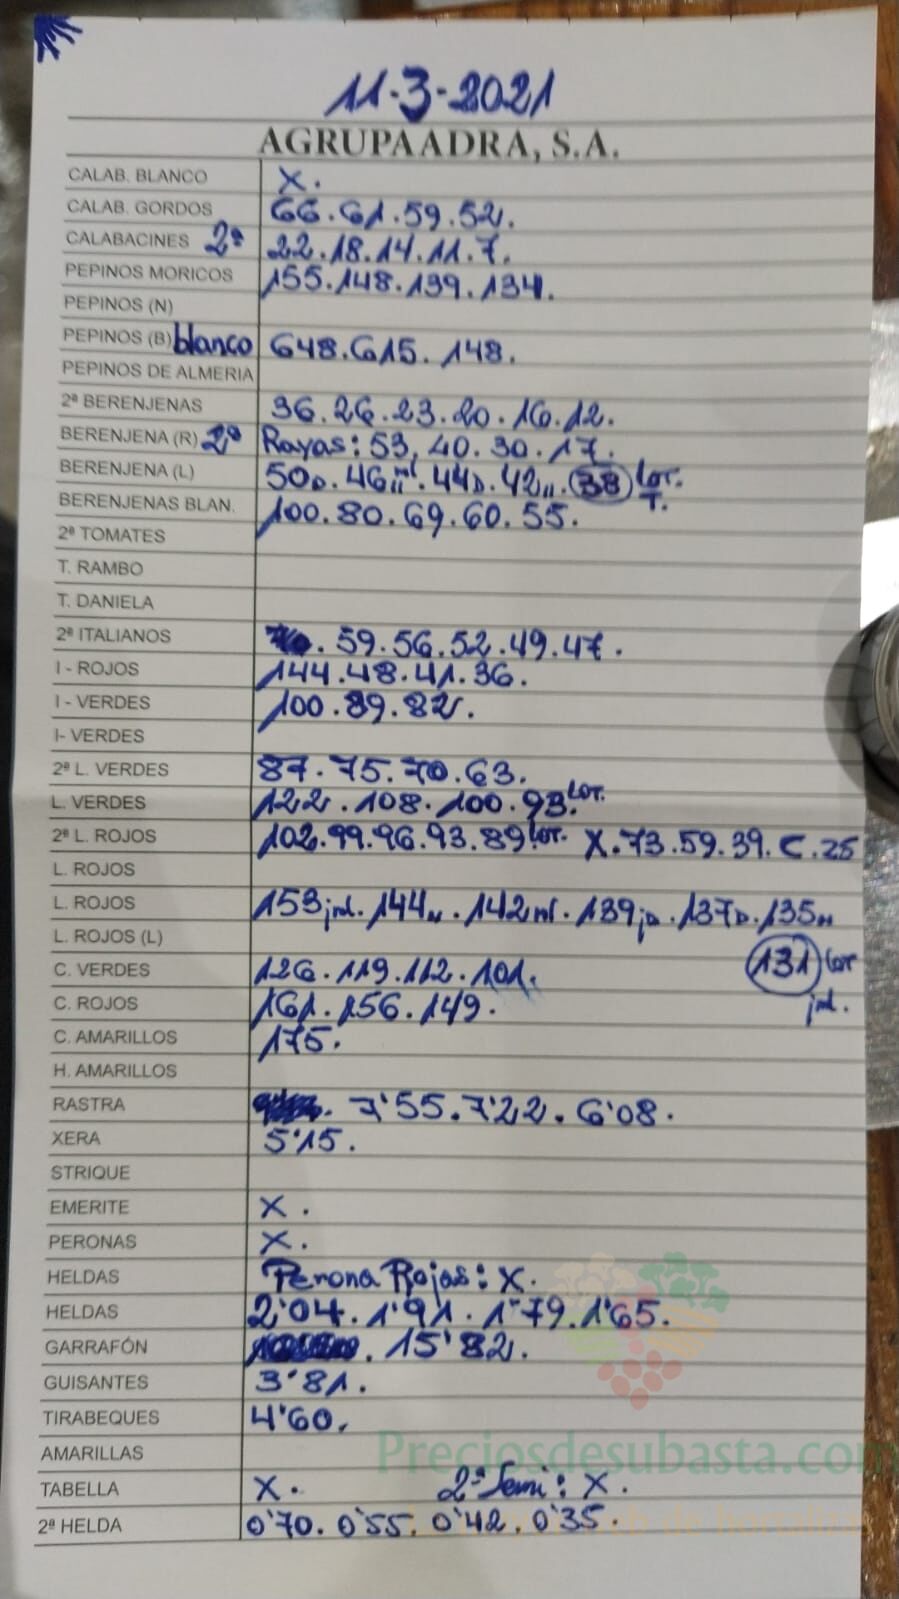 11-3-2021
AGRUPAADRA, S.A.
CALAB. BLANCO X.
CALAB. GORDOS 66.61.59.52.
CALABACINES 2ª 22.18.14.11.7.
PEPINOS MORICOS 155.148.139.134.
PEPINOS (N)
PEPINOS (B) blanco 648.615.148.
PEPINOS DE ALMERIA
2ª BERENJENAS 36.26.23.20.16.12.
BERENJENA (R) 2ª Rayas: 53, 40.30.17.
BERENJENA (L) 50D.46".44D.42".38 Lor. T.
BERENJENAS BLAN. 100.80.69.60.55.
2ª TOMATES
T. RAMBO
T. DANIELA
2ª ITALIANOS .59.56.52.49.47.
I - ROJOS 144.48.41.36.
I - VERDES 100.89.82.
I- VERDES
2ª L. VERDES 87.75.70.63.
L. VERDES 122.108.100.93.Lor.
2ª L. ROJOS 102.99.96.93.89 Lor. X.73.59.39.C.25
L. ROJOS
L. ROJOS 153 jnl.144".142 nl.139 jD.137D.135"
L. ROJOS (L) 131 Lor
C. VERDES 126.119.112.101.
C. ROJOS 161.156.149. jnl.
C. AMARILLOS 175.
H. AMARILLOS
RASTRA . 7'55.7'22.6'08.
XERA 5'15.
STRIQUE
EMERITE X.
PERONAS X.
HELDAS Perona Rojas: X.
HELDAS 2'04.1'91.1'79.1'65.
GARRAFÓN . 15'82.
GUISANTES 3'81.
TIRABEQUES 4'60.
AMARILLAS
Preciosdesubasta.com
TABELLA X. 2ª Semi: X.
2ª HELDA 0'70.0'55.0'42.0'35.
de hortaliz